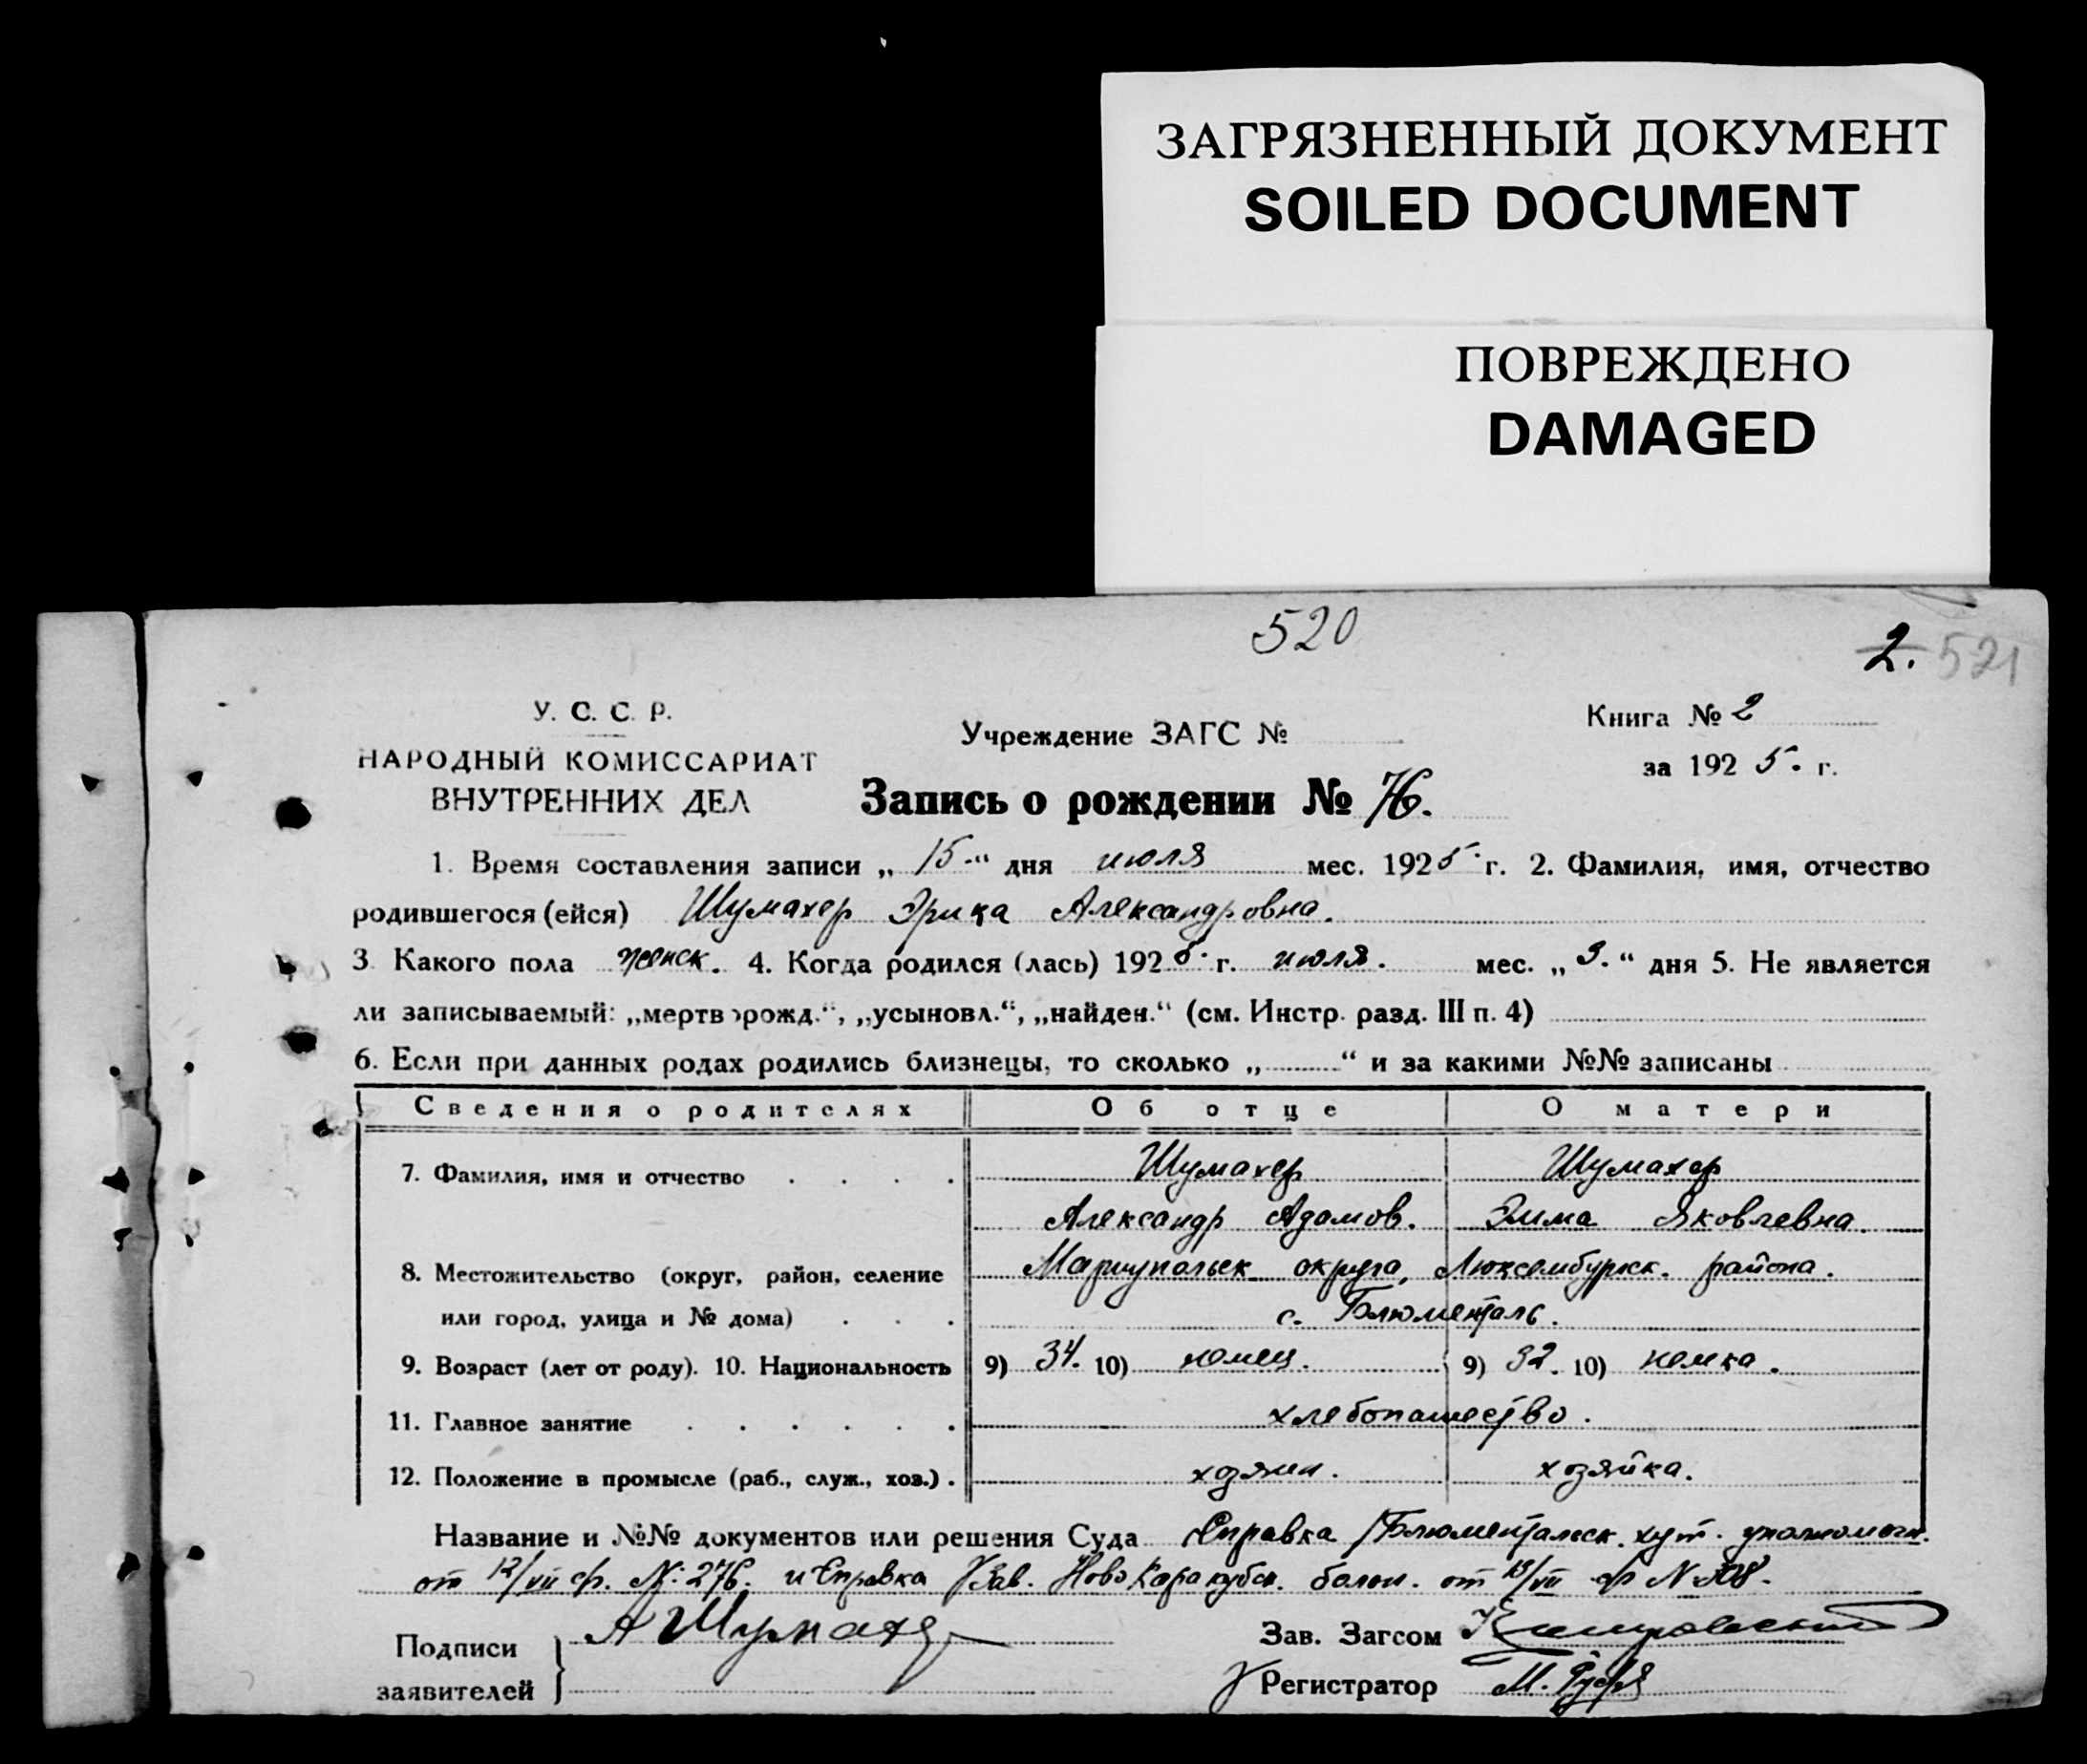 ЗАГРЯЗНЕННЫЙ ДОКУМЕНТ
SOILED DOCUMENT
ПОВРЕЖДЕНО
DAMAGED
520
2. 521
У. С. С. Р.
НАРОДНЫЙ КОМИССАРИАТ
ВНУТРЕННИХ ДЕЛ
Учреждение ЗАГС №
Книга № 2
за 1925. г.
Запись о рождении № 76.
1. Время составления записи „15.“ дня июля мес. 1925 г. 2. Фамилия, имя, отчество
родившегося (ейся) Шумахер Эрика Александровна.
3. Какого пола женск. 4. Когда родился (лась) 1925 г. июля. мес. „9.“ дня 5. Не является
ли записываемый: „мертворожд.“, „усыновл.“, „найден.“ (см. Инстр. разд. III п. 4)
6. Если при данных родах родились близнецы, то сколько „ “ и за какими №№ записаны
Сведения о родителях Об отце О матери
7. Фамилия, имя и отчество Шумахер Шумахер
Александр Адамов. Эмма Яковлевна.
8. Местожительство (округ, район, селение Мариупольск округа, Люксембургск. района.
или город, улица и № дома) с. Блюменталь.
9. Возраст (лет от роду). 10. Национальность 9) 34. 10) немец. 9) 32. 10) немка.
11. Главное занятие хлебопашество.
12. Положение в промысле (раб., служ., хоз.) хозяин. хозяйка.
Название и №№ документов или решения Суда Справка Блюментальск. хут. уполномоч.
от 12/VII ср. №: 276. и Справка Зав. Ново Каракубск. больн. от 13/VII №
Подписи
заявителей
А Шумахер
Зав. Загсом
Регистратор М.